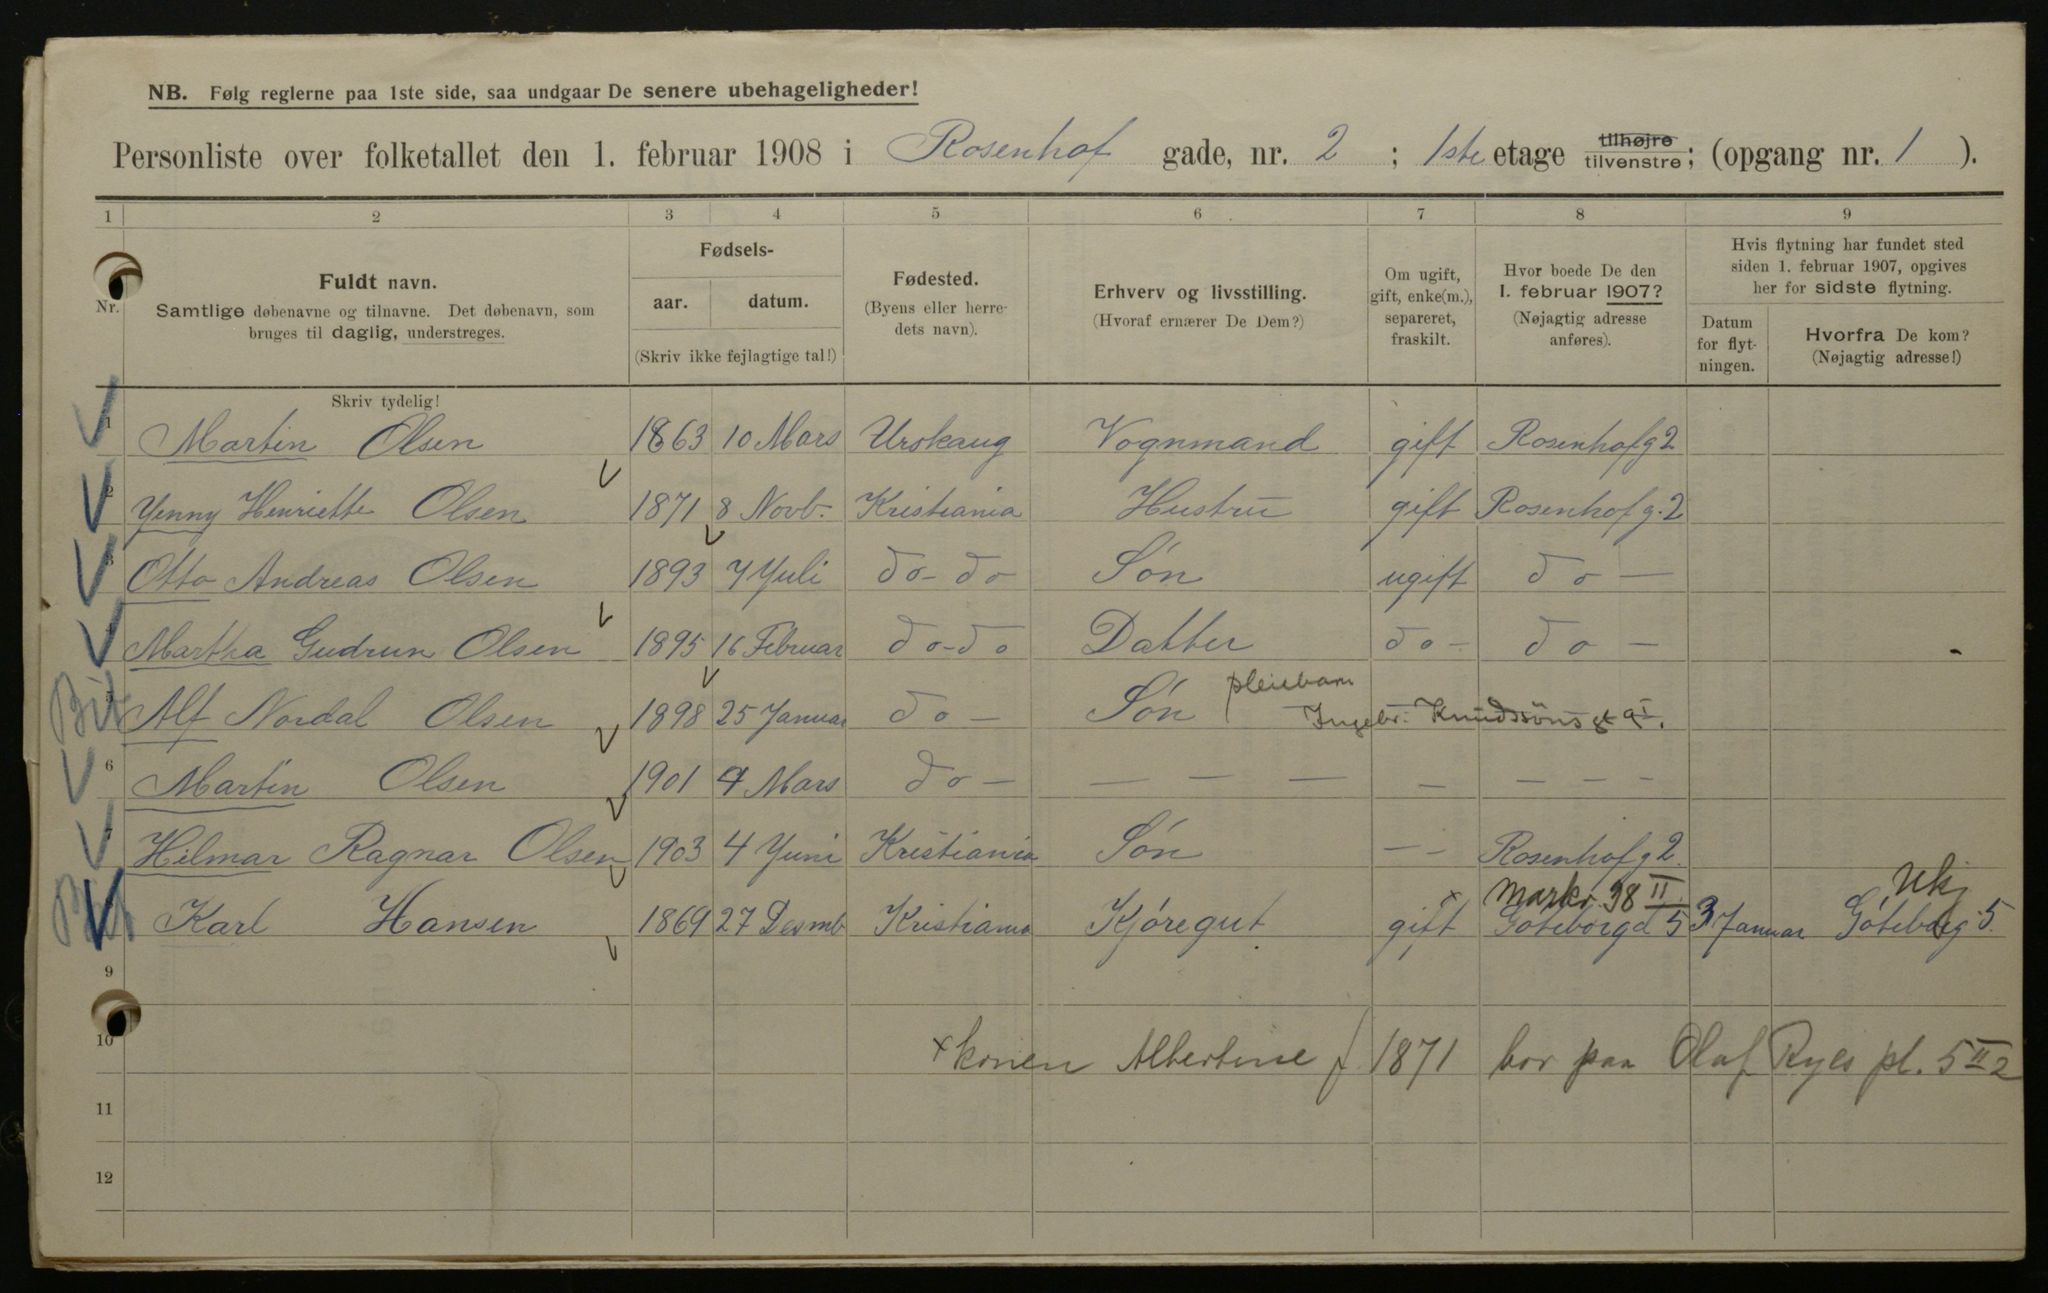 NB. Følg reglerne paa 1ste side, saa undgaar De senere ubehageligheder!
Personliste over folketallet den 1. februar 1908 i Rosenhof gade, nr. 2 ; 1ste etage tilhøjre tilvenstre; (opgang nr. 1 ).
1 2 3 4 5 6 7 8 9
Nr.
Fuldt navn.
Samtlige døbenavne og tilnavne. Det døbenavn, som
bruges til daglig, understreges.
Fødsels-
aar. datum.
(Skriv ikke fejlagtige tal!)
Fødested.
(Byens eller herre-
dets navn).
Erhverv og livsstilling.
(Hvoraf ernærer De Dem?)
Om ugift,
gift, enke(m.),
separeret,
fraskilt.
Hvor boede De den
1. februar 1907?
(Nøjagtig adresse
anføres).
Hvis flytning har fundet sted
siden 1. februar 1907, opgives
her for sidste flytning.
Datum
for flyt-
ningen.
Hvorfra De kom?
(Nøjagtig adresse!)
Skriv tydelig!
1 Martin Olsen 1863 10 Mars Urskaug Vognmand gift Rosenhofg 2
2 Yenny Henriette Olsen 1871 8 Novb. Kristiania Hustru gift Rosenhofg. 2
3 Otto Andreas Olsen 1893 7 Yuli do - do Søn ugift do —
4 Martha Gudrun Olsen 1895 16 Februar do - do Datter do - do —
5 Alf Nordal Olsen 1898 25 Januar do — Søn pleiebarn
Ingebr. Knudssøns gt 9 I.
6 Martin Olsen 1901 4 Mars do — — — — — — — —
7 Hilmar Ragnar Olsen 1903 4 Yuni Kristiania Søn — - Rosenhofg 2.
Markv. 38 II
Karl Hansen 1869 27 Desmb Kristiania Kjøregut gift Gøteborgd 5 3 Januar Gøteborg 5.
9
10
× konen Albertine f 1871 bor paa Olaf Ryes pl. 5 II 2
11
12